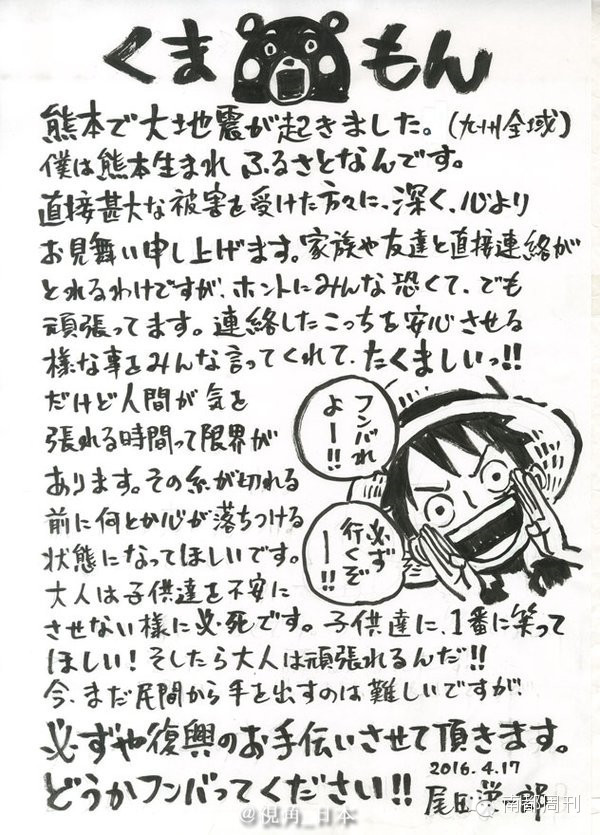 くまもん
熊本で大地震が起きました。(九州全域)
僕は熊本生まれ ふるさとなんです。
直接甚大な被害を受けた方々に、深く、心より
お見舞い申し上げます。家族や友達と直接連絡が
とれるわけですが、ホントにみんな恐くて、でも
頑張ってます。連絡したこっちを安心させる
様な事をみんな言ってくれて、たくましいっ!!
だけど人間が気を
張れる時間って限界が
あります。その糸が切れる
前に何とか心が落ちつける
状態になってほしいです。
大人は子供達を不安に
させない様に必死です。子供達に、1番に笑って
ほしい!そしたら大人は頑張れるんだ!!
今、まだ民間から手を出すのは難しいですが、
必ずや復興のお手伝いさせて頂きます。
どうかフンバってください!!
フンバれ
よー!!
必ず
行くぞ
ー!!
2016.4.17
尾田栄一郎
@視角_日本
南都周刊